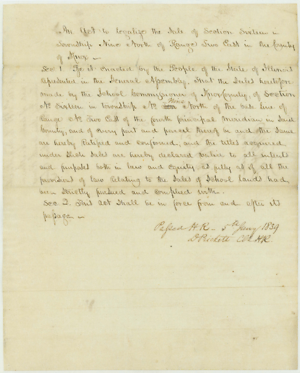 An Act to legalize the Sale of Section Sixteen in
Township Nine North of Range Two East in the County
of Knox
Sec 1 Be it enacted by the People of the State of Illinois
represented in the General Assembly, That the Sales heretofore
made by the School Commissioner of Knox County, of Section
No Sixteen in township No Nine North of the base line of
Range No Two East of the fourth principal Meridian in said
County, and of every part and parcel thereof and the Same
are hereby ratified and confirmed, and the titles acquired
under Such Sales are hereby declared valid to all intents
and purposes both in law and equity as fully as if all the
provisions of law relating to the Sales of School lands had
been Strictly pursued and complied with.
Sec 2. This act Shall be in force from and after its
passage
Passed H.R. 5th 1839
Clk H.R.